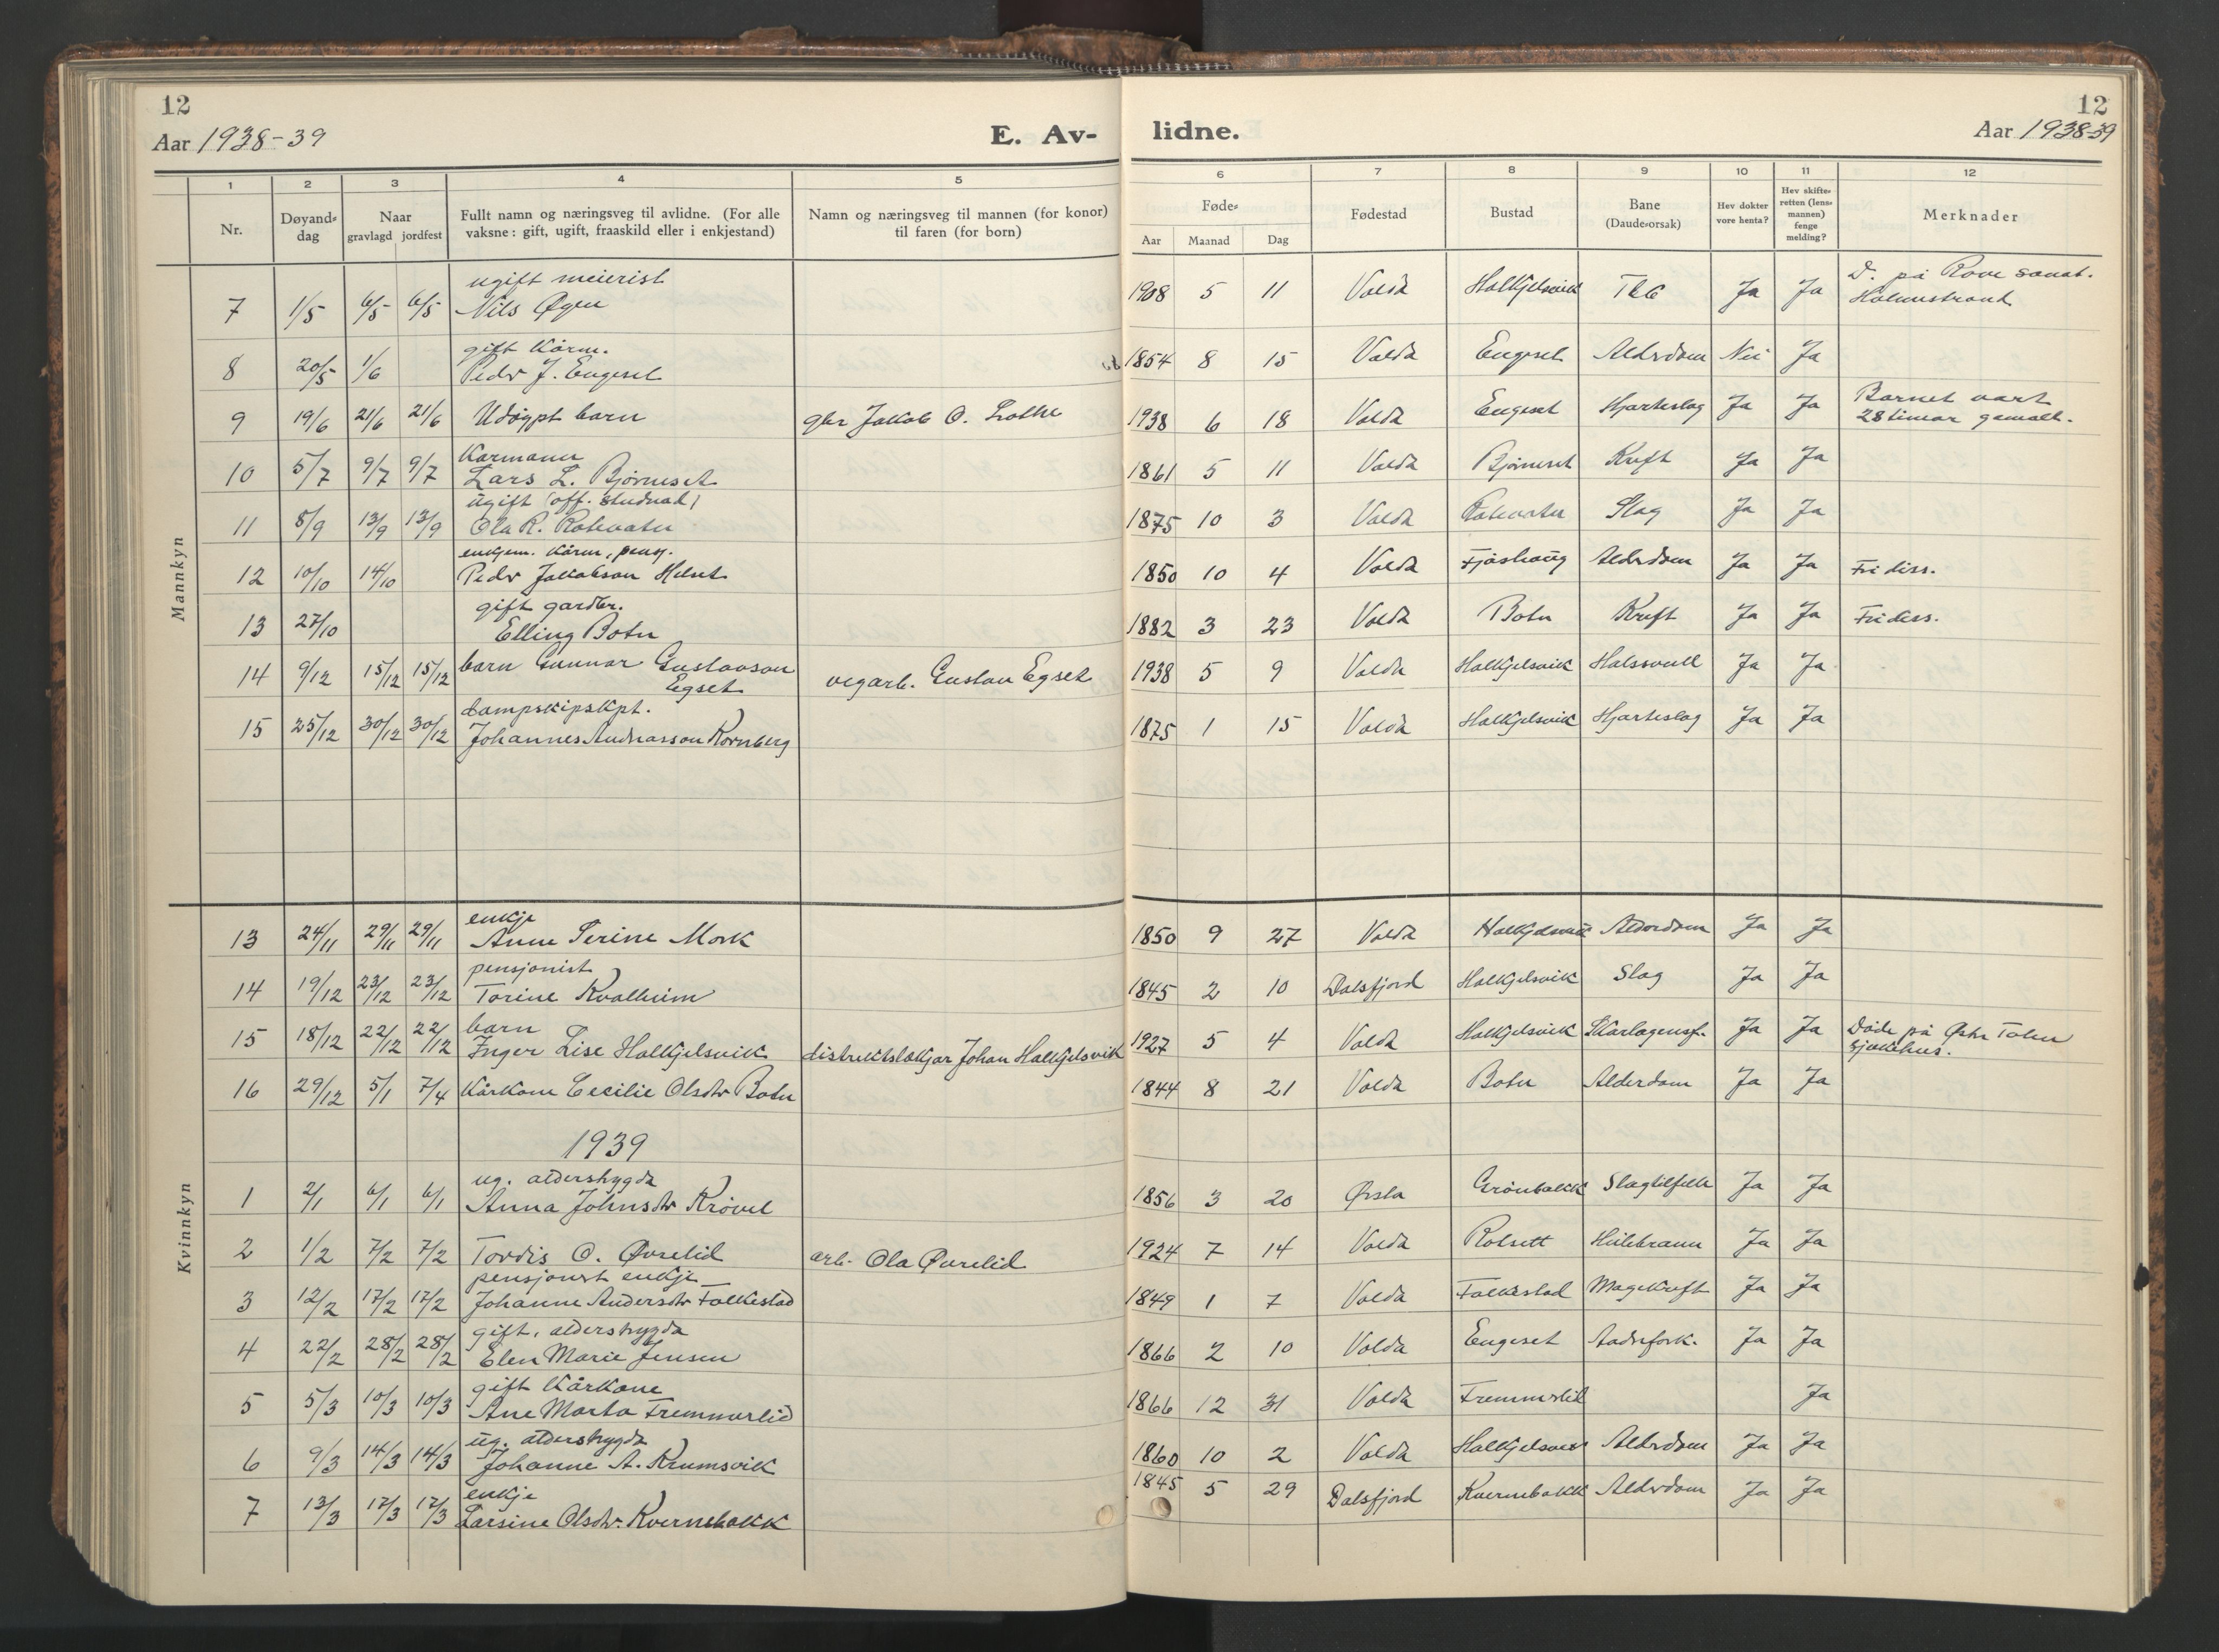 12
Aar 1938-39
E. Av-
1 2 3 4 5
Nr.
Døyands-
dag
Naar
gravlagd jordfest
Fullt namn og næringsveg til avlidne. (For alle
vaksne: gift, ugift, fraaskild eller i enkjestand)
Namn og næringsveg til mannen (for konor)
til faren (for born)
Mannkyn
ugift meierist
7 1/5 6/5 6/5 Nils Øyen
gift kårm.
8 20/5 1/6 Peder J. Engeset
9 19/6 21/6 21/6 Udøypt barn gbr Jakob O. Lothe
Kårmann
10 5/7 9/7 9/7 Lars L. Bjørneset
ugift (off. studnad)
11 8/9 13/9 13/9 Ola R. Rotevatn
enkjem. kårm, pens.
12 10/10 14/10 Peder Jakobson Helset
gift gardbr.
13 27/10 Elling Botn
14 9/12 15/12 15/12 barn Gunnar Gustavson
Egset vegarb. Gustav Egset
dampskipskpt.
15 25/12 30/12 30/12 Johannes Andreasson Kornberg
Kvinnkyn
enkje
13 24/11 29/11 29/11 Anne Serine Mork
pensjonist
14 19/12 23/12 23/12 Torine Kvalheim
barn
15 18/12 22/12 22/12 Inger Lise Halkjelsvik distriktslækjar Johan Halkjelsvik
16 29/12 5/1 7/4 Kårkone Cecilie Olsdtr Botn
1939
ug. alderstrygda
1 2/1 6/1 6/1 Anna Johnsdtr Krøvel
2 1/2 7/2 7/2 Tordis O. Øvrelid arb. Ola Øvrelid
pensjonist enkje
3 12/2 17/2 17/2 Johanne Andersdtr Folkestad
gift, alderstrygda
4 22/2 28/2 28/2 Elen Marie Jensen
gift Kårkone
5 5/3 10/3 10/3 Ane Marta Fremmerlid
ug. alderstrygda
6 9/3 14/3 14/3 Johanne A. Krumsvik
enkje
7 13/3 17/3 17/3 Larsine Olsdtr. Kvernebakk
12
lidne.
Aar 1938-39
6 7 8 9 10 11 12
Føde-
Aar Maanad Dag
Fødestad
Bustad
Bane
(Daude-orsak)
Hev dokter
vore henta?
Hev skifte-
retten (lens-
mannen)
fenge
melding?
Merknader
1908 5 11 Volda Halkjelsvik Tbc Ja Ja D. på Rove sanat.
Holmestrand
1854 8 15 Volda Engeset Alderdom Nei Ja
1938 6 18 Volda Engeset Hjarteslag Ja Ja Barnet vart
28 timar gamalt.
1861 5 11 Volda Bjørneset Kreft Ja Ja
1875 10 3 Volda Rotevatn Slag Ja Ja
1850 10 4 Volda Fjøshaug Alderdom Ja Ja Fri diss.
1882 3 23 Volda Botn Kreft Ja Ja Fri diss.
1938 5 9 Volda Halkjelsvik Halssvull Ja Ja
1875 1 15 Volda Halkjelsvik Hjarteslag Ja Ja
1850 9 27 Volda Halkjelsvik Alderdom Ja Ja
1845 2 10 Dalsfjord Halkjelsvik Slag Ja Ja
1927 5 4 Volda Halkjelsvik Skarlagensf. Ja Ja Døde på Østre Toten
sjukehus.
1844 8 21 Volda Botn Alderdom Ja Ja
1856 3 20 Ørsta Grønbakk Slagtilfelle Ja Ja
1924 7 14 Volda Rotsett Heilebrann Ja Ja
1849 1 7 Volda Folkestad Magekreft Ja Ja
1866 2 10 Volda Engeset Aadrefork. Ja Ja
1866 12 31 Volda Fremmerlid Ja
1860 10 2 Volda Halkjelsvik Alderdom Ja Ja
1845 5 29 Dalsfjord Kvernebakk Alderdom Ja Ja